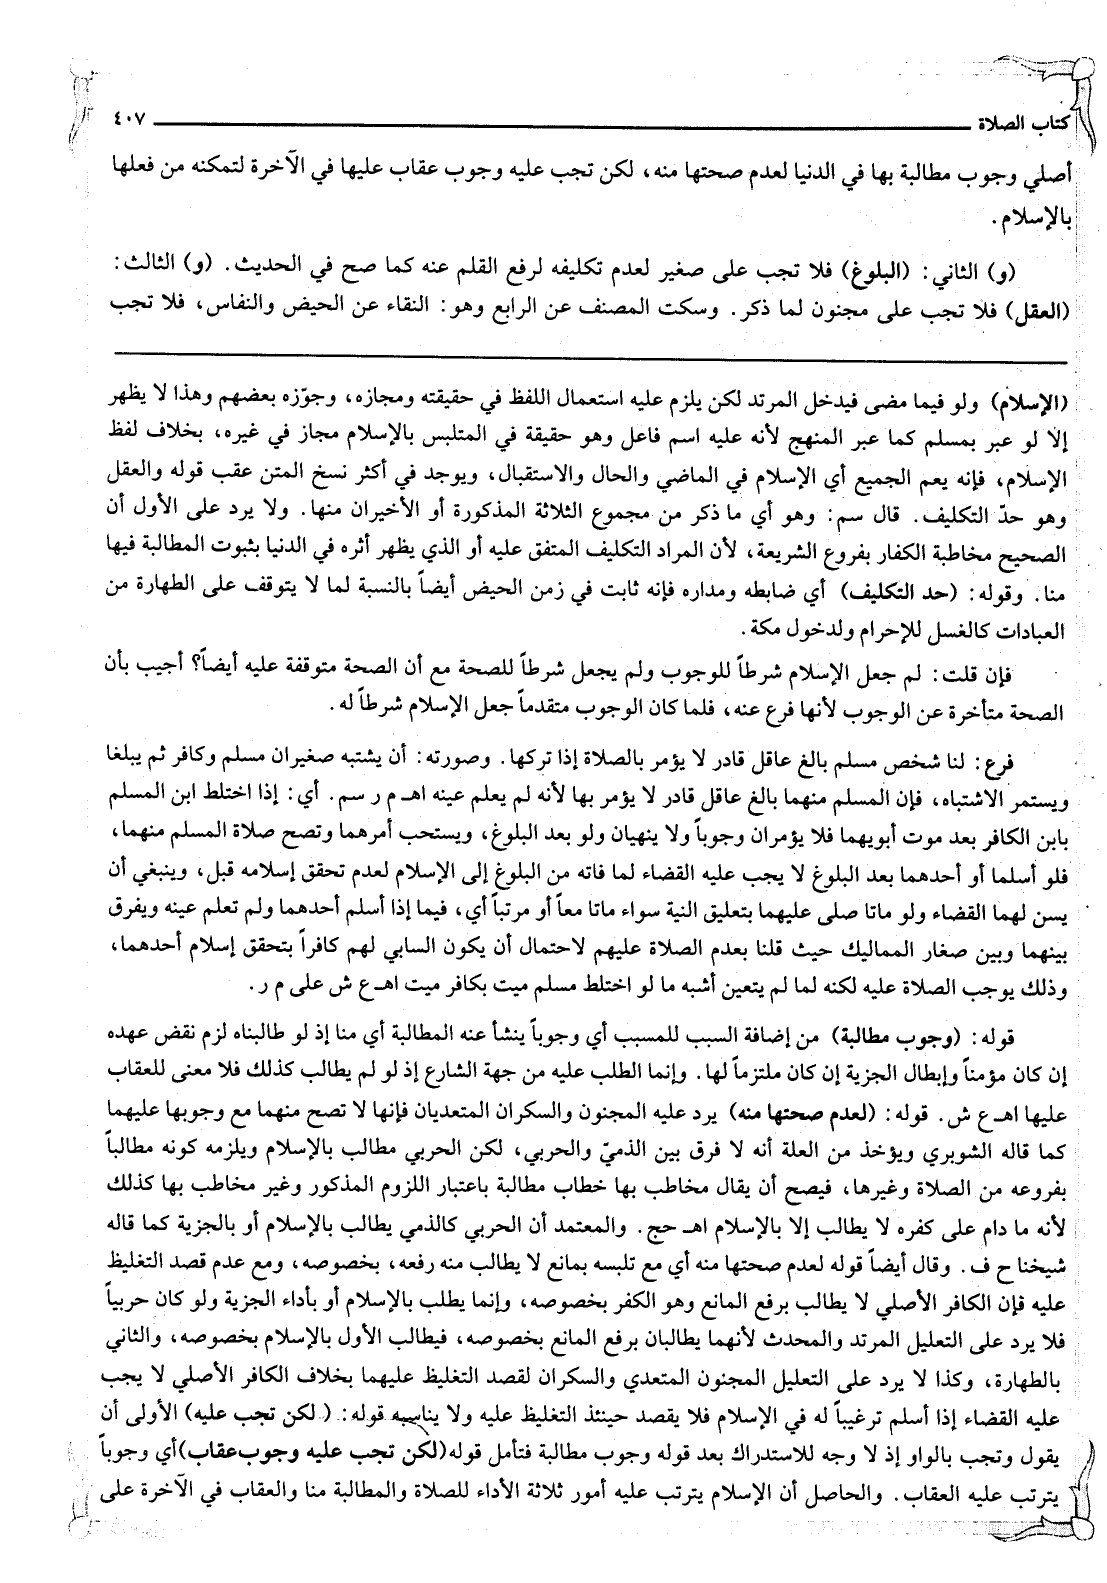 كتاب الصلاة ٤٠٧
أصلي وجوب مطالبة بها في الدنيا لعدم صحتها منه، لكن تجب عليه وجوب عقاب عليها في الآخرة لتمكنه من فعلها
بالإسلام.
(و) الثاني: (البلوغ) فلا تجب على صغير لعدم تكليفه لرفع القلم عنه كما صح في الحديث. (و) الثالث:
(العقل) فلا تجب على مجنون لما ذكر. وسكت المصنف عن الرابع وهو: النقاء عن الحيض والنفاس، فلا تجب
(الإسلام) ولو فيما مضى فيدخل المرتد لكن يلزم عليه استعمال اللفظ في حقيقته ومجازه، وجوّزه بعضهم وهذا لا يظهر
إلا لو عبر بمسلم كما عبر المنهج لأنه عليه اسم فاعل وهو حقيقة في المتلبس بالإسلام مجاز في غيره، بخلاف لفظ
الإسلام، فإنه يعم الجميع أي الإسلام في الماضي والحال والاستقبال، ويوجد في أكثر نسخ المتن عقب قوله والعقل
وهو حدّ التكليف. قال سم: وهو أي ما ذكر من مجموع الثلاثة المذكورة أو الأخيران منها. ولا يرد على الأول أن
الصحيح مخاطبة الكفار بفروع الشريعة، لأن المراد التكليف المتفق عليه أو الذي يظهر أثره في الدنيا بثبوت المطالبة فيها
منا. وقوله: (حد التكليف) أي ضابطه ومداره فإنه ثابت في زمن الحيض أيضاً بالنسبة لما لا يتوقف على الطهارة من
العبادات كالغسل للإحرام ولدخول مكة.
فإن قلت: لم جعل الإسلام شرطاً للوجوب ولم يجعل شرطاً للصحة مع أن الصحة متوقفة عليه أيضاً؟ أجيب بأن
الصحة متأخرة عن الوجوب لأنها فرع عنه، فلما كان الوجوب متقدماً جعل الإسلام شرطاً له.
فرع: لنا شخص مسلم بالغ عاقل قادر لا يؤمر بالصلاة إذا تركها. وصورته: أن يشتبه صغيران مسلم وكافر ثم يبلغا
ويستمر الاشتباه، فإن المسلم منهما بالغ عاقل قادر لا يؤمر بها لأنه لم يعلم عينه اهـ م ر سم. أي: إذا اختلط ابن المسلم
بابن الكافر بعد موت أبويهما فلا يؤمران وجوباً ولا ينهيان ولو بعد البلوغ، ويستحب أمرهما وتصح صلاة المسلم منهما،
فلو أسلما أو أحدهما بعد البلوغ لا يجب عليه القضاء لما فاته من البلوغ إلى الإسلام لعدم تحقق إسلامه قبل، وينبغي أن
يسن لهما القضاء ولو ماتا صلى عليهما بتعليق النية سواء ماتا معاً أو مرتباً أي، فيما إذا أسلم أحدهما ولم تعلم عينه ويفرق
بينهما وبين صغار المماليك حيث قلنا بعدم الصلاة عليهم لاحتمال أن يكون السابي لهم كافراً بتحقق إسلام أحدهما،
وذلك يوجب الصلاة عليه لكنه لما لم يتعين أشبه ما لو اختلط مسلم ميت بكافر ميت اهـ ع ش على م ر.
قوله: (وجوب مطالبة) من إضافة السبب للمسبب أي وجوباً ينشأ عنه المطالبة أي منا إذ لو طالبناه لزم نقض عهده
إن كان مؤمناً وإبطال الجزية إن كان ملتزماً لها. وإنما الطلب عليه من جهة الشارع إذ لو لم يطالب كذلك فلا معنى للعقاب
عليها اهـ ع ش. قوله: (لعدم صحتها منه) يرد عليه المجنون والسكران المتعديان فإنها لا تصح منهما مع وجوبها عليهما
كما قاله الشوبري ويؤخذ من العلة أنه لا فرق بين الذميّ والحربي، لكن الحربي مطالب بالإسلام ويلزمه كونه مطالباً
بفروعه من الصلاة وغيرها، فيصح أن يقال مخاطب بها خطاب مطالبة باعتبار اللزوم المذكور وغير مخاطب بها كذلك
لأنه ما دام على كفره لا يطالب إلا بالإسلام اهـ حج. والمعتمد أن الحربي كالذمي يطالب بالإسلام أو بالجزية كما قاله
شيخنا ح ف. وقال أيضاً قوله لعدم صحتها منه أي مع تلبسه بمانع لا يطالب منه رفعه، بخصوصه، ومع عدم قصد التغليظ
عليه فإن الكافر الأصلي لا يطالب برفع المانع وهو الكفر بخصوصه، وإنما يطلب بالإسلام أو بأداء الجزية ولو كان حربياً
فلا يرد على التعليل المرتد والمحدث لأنهما يطالبان برفع المانع بخصوصه، فيطالب الأول بالإسلام بخصوصه، والثاني
بالطهارة، وكذا لا يرد على التعليل المجنون المتعدي والسكران لقصد التغليظ عليهما بخلاف الكافر الأصلي لا يجب
عليه القضاء إذا أسلم ترغيباً له في الإسلام فلا يقصد حينئذ التغليظ عليه ولا يناسبه قوله: (لكن تجب عليه) الأولى أن
يقول وتجب بالواو إذ لا وجه للاستدراك بعد قوله وجوب مطالبة فتأمل قوله(لكن تجب عليه وجوب عقاب)أي وجوباً
يترتب عليه العقاب. والحاصل أن الإسلام يترتب عليه أمور ثلاثة الأداء للصلاة والمطالبة منا والعقاب في الآخرة على